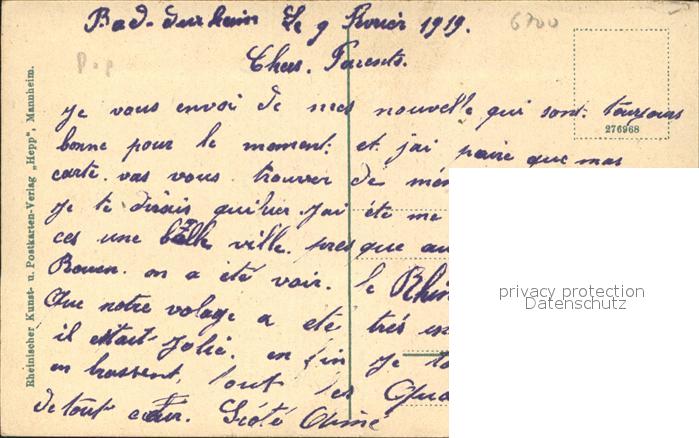 6700
Bad-Durheim Le 9 Fevrier 1919.
Pop
Cher. Parents.
Je vous envoi de mes nouvelle qui sont: toujours
bonne pour le moment: et j'ai que mas
carte. vas vous trouver de
Je te dirais qu'hier. J'ai été me
ces une belle ville. presque au
Rouen. on a été voir. le Rhin
Que notre volage a été très
il était Jolie. en fin je
en brassent, tout les
de tout cœur. Aimé
276968
Rheinischer Kunst- u. Postkarten-Verlag „Hepp", Mannheim.
privacy protection
Datenschutz